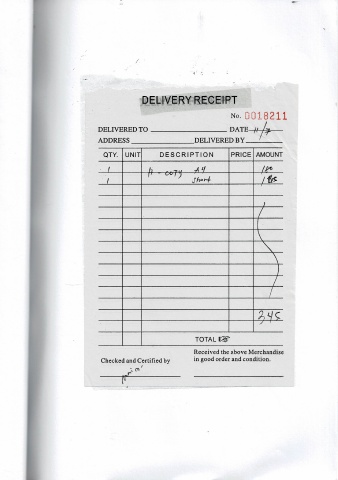 DELIVERY RECEIPT
No. 0018211
DELIVERED TO DATE 11/7
ADDRESS DELIVERED BY
QTY. UNIT DESCRIPTION PRICE AMOUNT
1 A4
1 Short
345
TOTAL
Checked and Certified by
Received the above Merchandise
in good order and condition.